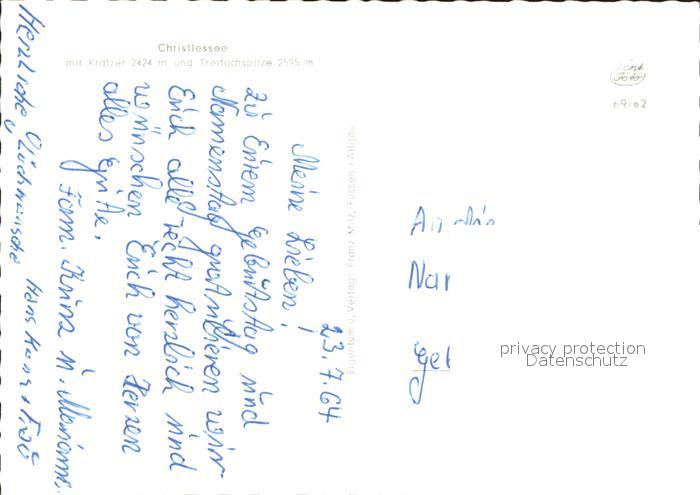 Christlessee
mit Kratzer 2424 m und Trettachspitze 2595 m
69/62
23.7.64
Meine Lieben!
Zu Eurem Geburtstag und
Namenstag gratulieren wir
Euch alle recht herzlich und
wünschen Euch von Herzen
alles Gute.
Fam. Kunz u.
Herzliche Glückwünsche Hans
Eigentum u. Verlag: Franz Milz, Füssen / Allgäu
An die
privacy protection
Datenschutz